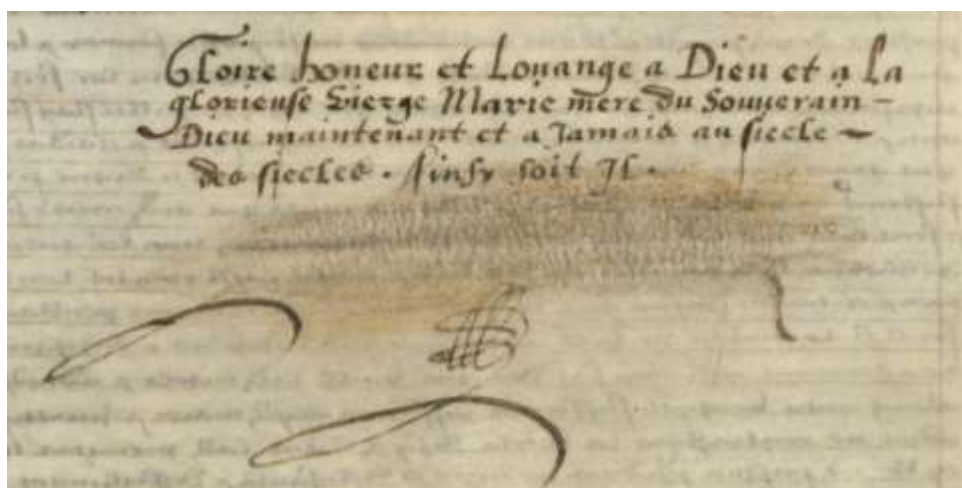 Gloire honeur et Louange a Dieu et a La
glorieuse Vierge Marie mere du Souverain -
Dieu maintenant et a Jamais au siecle
des siecles. Ainsy soit Il.